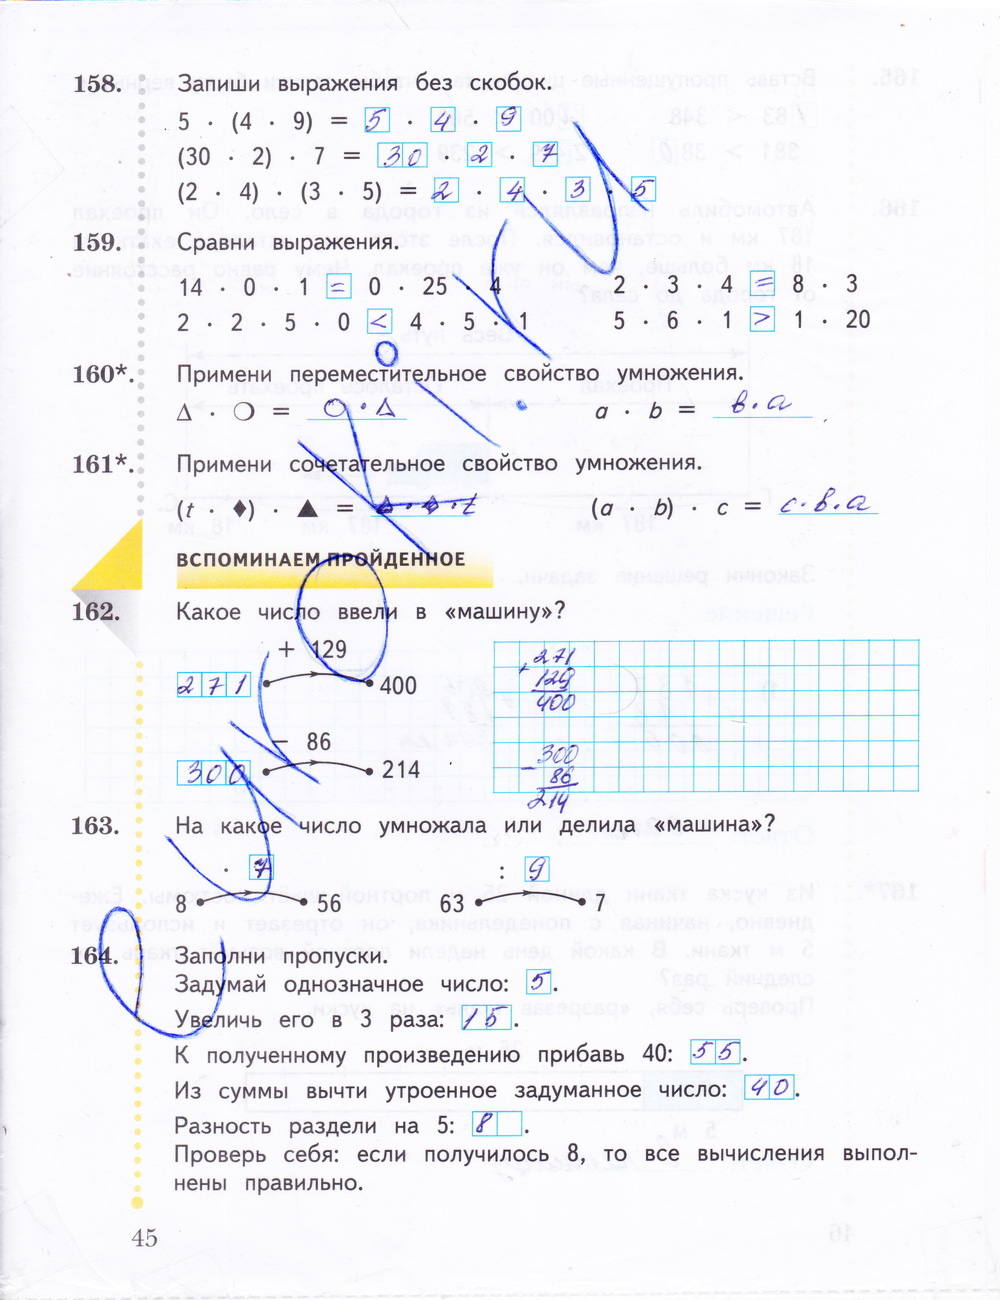 158. Запиши выражения без скобок.
5 · (4 · 9) = 5 · 4 · 9
(30 · 2) · 7 = 30 · 2 · 7
(2 · 4) · (3 · 5) = 2 · 4 · 3 · 5
159. Сравни выражения.
14 · 0 · 1 = 0 · 25 · 4 2 · 3 · 4 = 8 · 3
2 · 2 · 5 · 0 < 4 · 5 · 1 5 · 6 · 1 > 1 · 20
160*. Примени переместительное свойство умножения.
Δ · ○ = ○ · Δ a · b = в · a
161*. Примени сочетательное свойство умножения.
(t · ♦) · ▲ = ▲ · ♦ · t (a · b) · c = c · в · a
ВСПОМИНАЕМ ПРОЙДЕННОЕ
162. Какое число ввели в «машину»?
+ 129
271 400
+ 271
129
400
− 86
300 214
− 300
86
214
163. На какое число умножала или делила «машина»?
· 7 : 9
8 56 63 7
164. Заполни пропуски.
Задумай однозначное число: 5.
Увеличь его в 3 раза: 15.
К полученному произведению прибавь 40: 55.
Из суммы вычти утроенное задуманное число: 40.
Разность раздели на 5: 8.
Проверь себя: если получилось 8, то все вычисления выпол-
нены правильно.
45